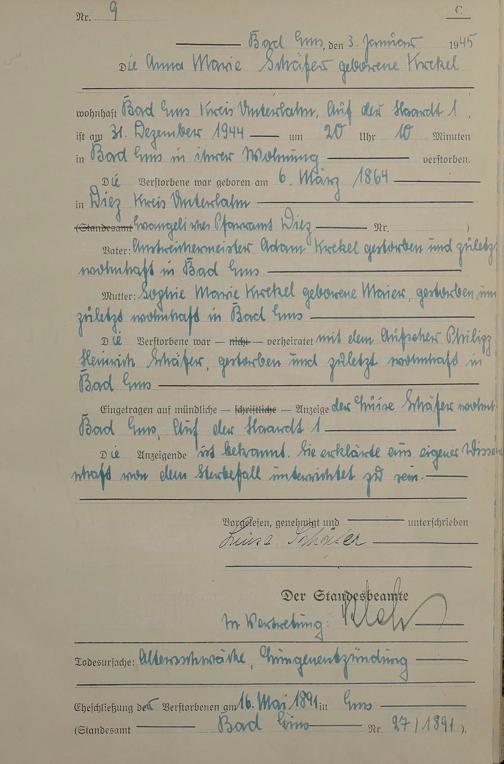 Nr. 9 C.
Bad Ems, den 3. Januar 1945
Die Anna Marie Schäfer geborene Krekel
wohnhaft Bad Ems Kreis Unterlahn, Auf der Haardt 1
ist am 31. Dezember 1944 um 20 Uhr 10 Minuten
in Bad Ems in ihrer Wohnung verstorben.
Die Verstorbene war geboren am 6. März 1864
in Diez Kreis Unterlahn
(Standesamt Evangelisches Pfarramt Diez Nr. )
Vater: Anstreichermeister Adam Krekel gestorben und zuletzt
wohnhaft in Bad Ems
Mutter: Sophie Marie Krekel geborene Maier, gestorben und
zuletzt wohnhaft in Bad Ems
Die Verstorbene war — nicht — verheiratet mit dem Aufseher Philipp
Heinrich Schäfer, gestorben und zuletzt wohnhaft in
Bad Ems
Eingetragen auf mündliche — schriftliche — Anzeige der Luise Schäfer wohnh.
Bad Ems, Auf der Haardt 1
Die Anzeigende ist bekannt. Sie erklärte aus eigener Wissen
schaft von dem Sterbefall unterrichtet zu sein.
Vorgelesen, genehmigt und unterschrieben
Luise Schäfer
Der Standesbeamte
In Vertretung:
Todesursache: Altersschwäche, Lungenentzündung
Eheschließung der Verstorbenen am 16. Mai 1891 in Ems
(Standesamt Bad Ems Nr. 27/1891).